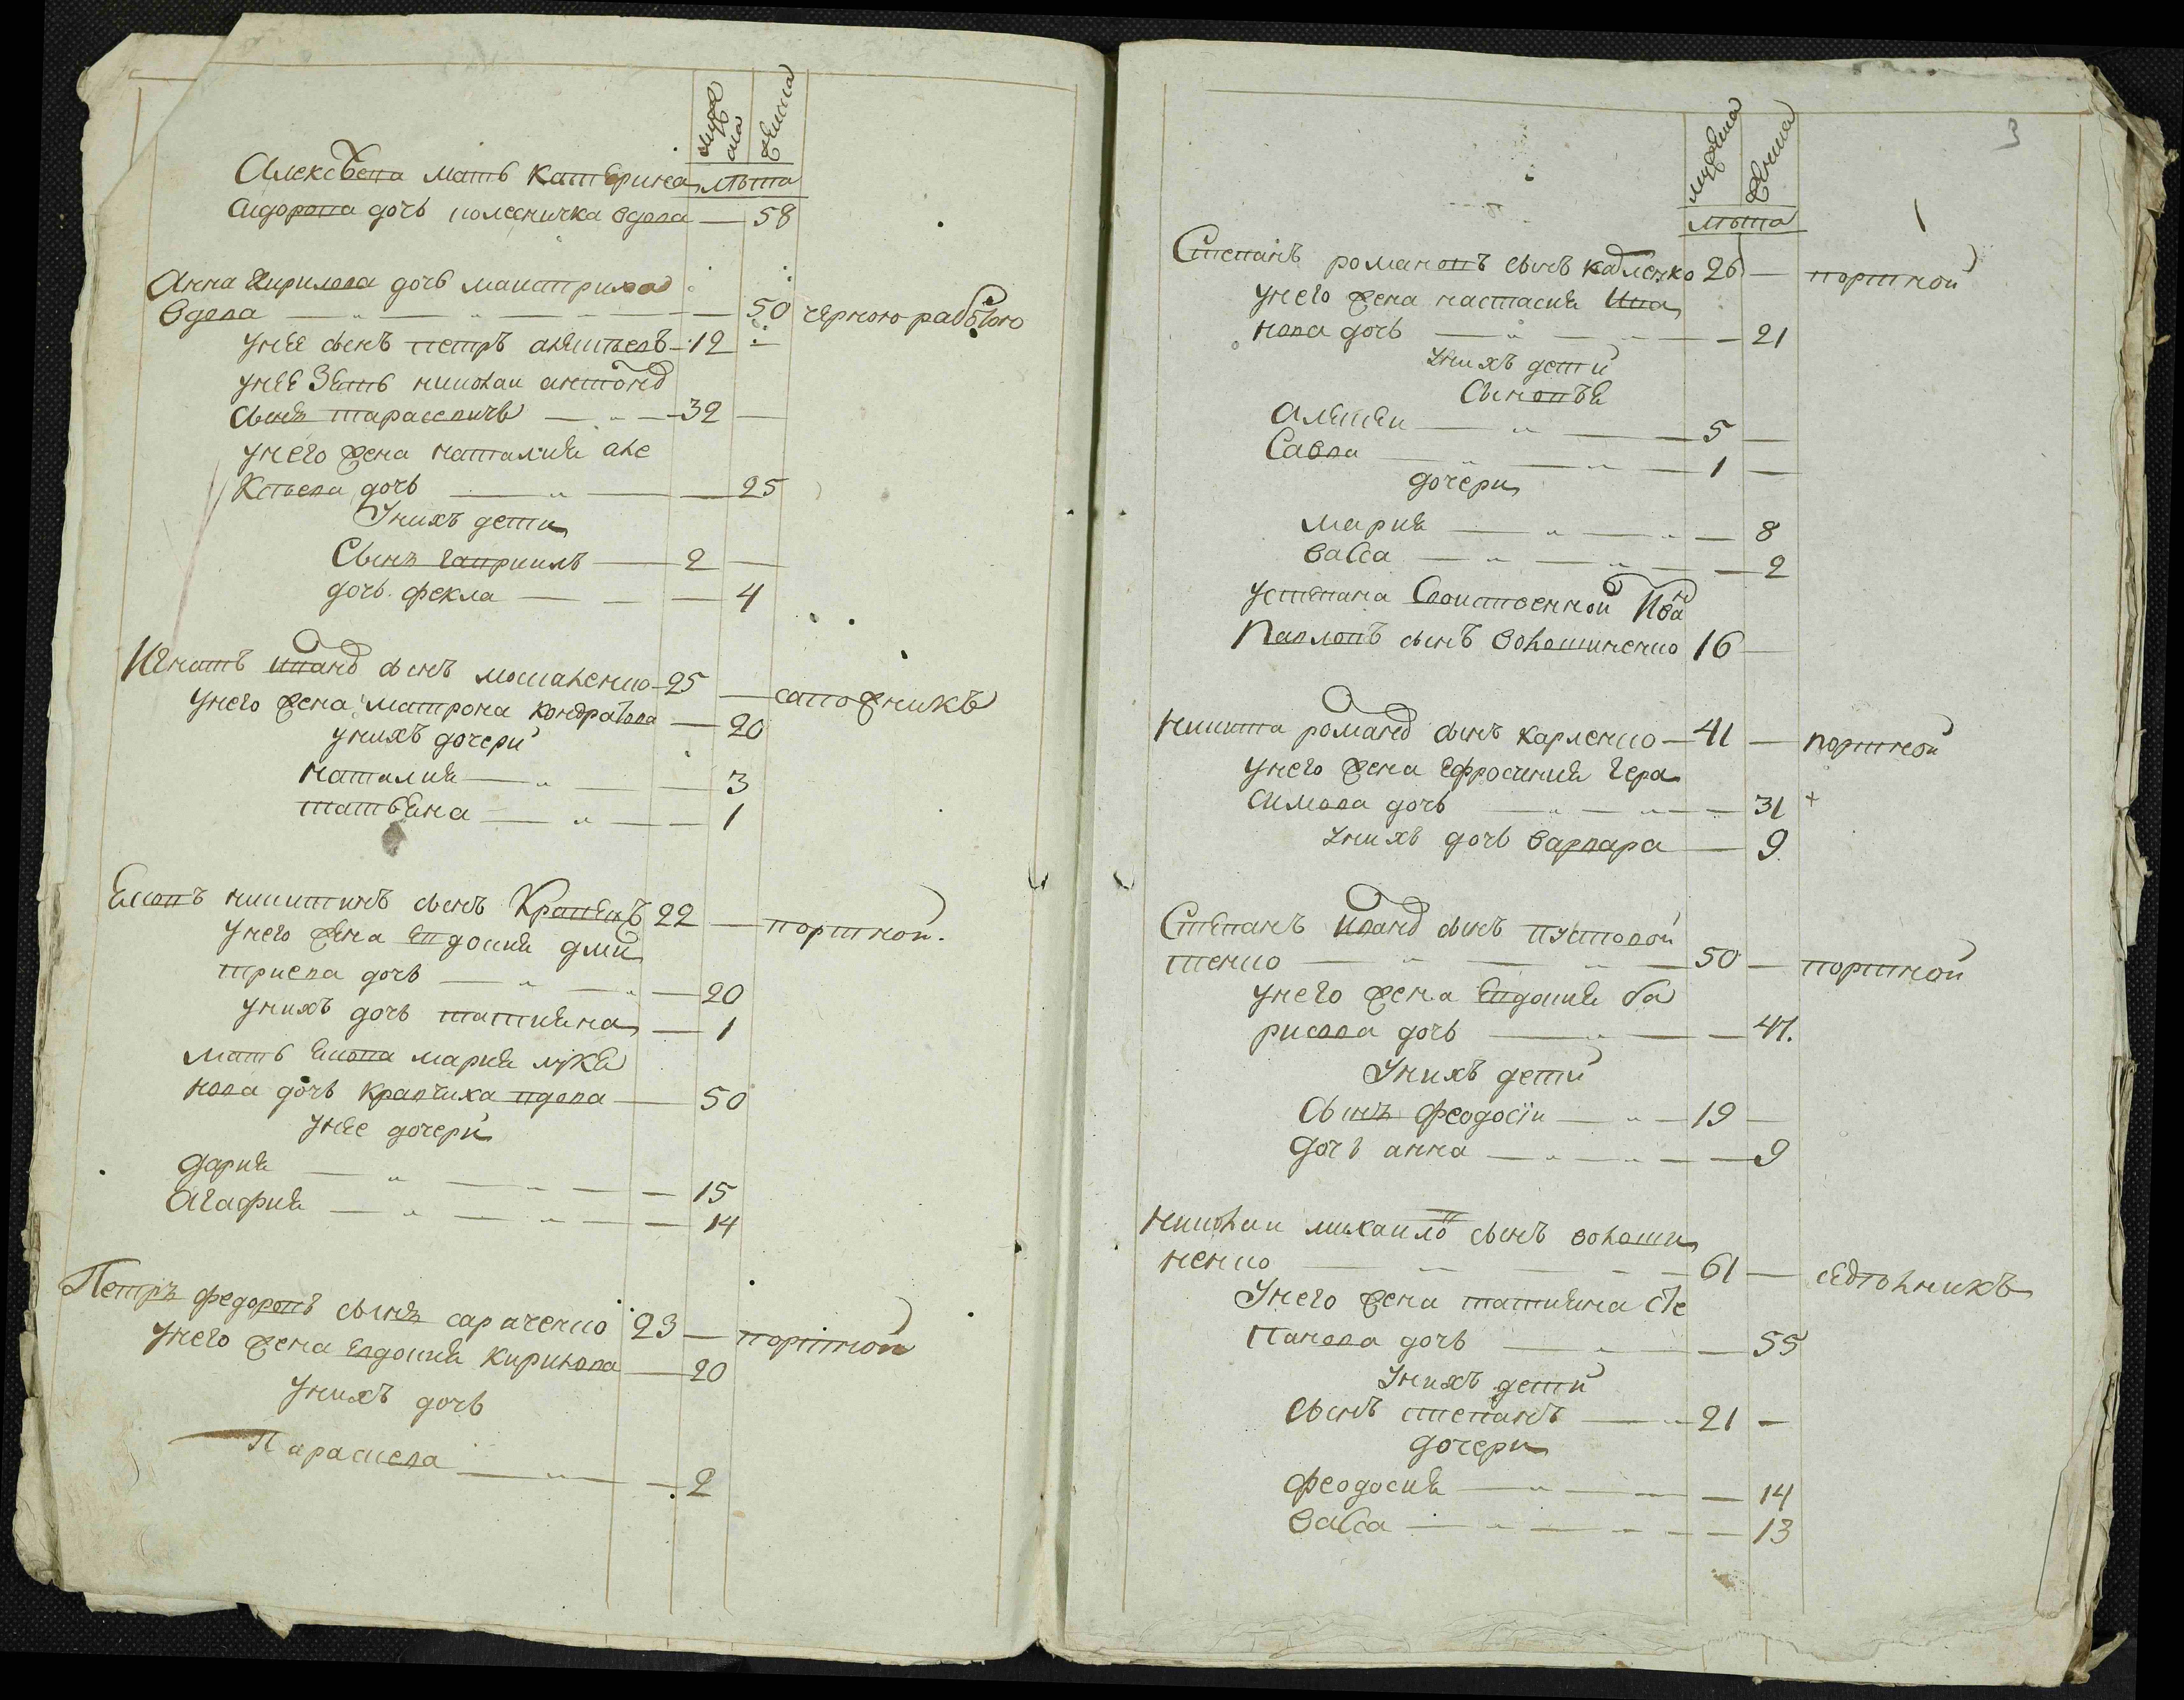 мужеска
женска
Алексеева мать катерина
лѣта
сидорова дочь колесничка вдова — 58
Анна Кирилова дочь маистриха
вдова — 50 черноработою
унее сынъ петръ алексѣевъ — 12 —
унее Зять николаи антоновъ
сынъ тарасевичъ — 32 —
унего жена наталия але
Ксѣева дочь — 25
Унихъ дети
Сынъ гавриилъ — 2 —
дочь фекла — 4
Игнатъ ивановъ сынъ 25 — сапожникъ
унего жена матрона кондратова — 20
унихъ дочери
наталия — 3
татьяна — 1
никитинъ сынъ 22 — портной.
унего жена евдокия дми
триева дочь — 20
унихъ дочь татияна — 1
мать мария лукя
нова дочь кравчиха вдова — 50
унее дочери
дария — 15
Агафия — 14
Петръ федоровъ сынъ сараченко 23 — портной
унего жена евдокия кирилова — 20
унихъ дочь
Параскева — 2
3
мужеска
женска
лѣта
Степанъ романовъ сынъ кобленко 26 — портной
унего жена настасия ива
нова дочь — 21
Унихъ дети
Сыновья
Алексѣи — 5 —
Савва — 1 —
дочери
мария — 8
васса — 2
устепана Своиственной Иванъ
Павловъ сынъ волошиненко 16 —
Никита романовъ сынъ карленко — 41 — портной
унего жена ефросиния гера
симова дочь — 31 +
Унихъ дочь варвара — 9
Степанъ Ивановъ сынъ пустовой
тенко — 50 — портной
унего жена Евдокия ба
рисова дочь — 47.
Унихъ дети
Сынъ феодосiи — 19 —
Дочь анна — 9
Николаи михаиловъ сынъ волоши
ненко — 61 — седѣлникъ
Унего жена татияна сте
панова дочь — 55
Унихъ дети
Сынъ степанъ — 21 —
дочери
феодосия — 14
васса — 13